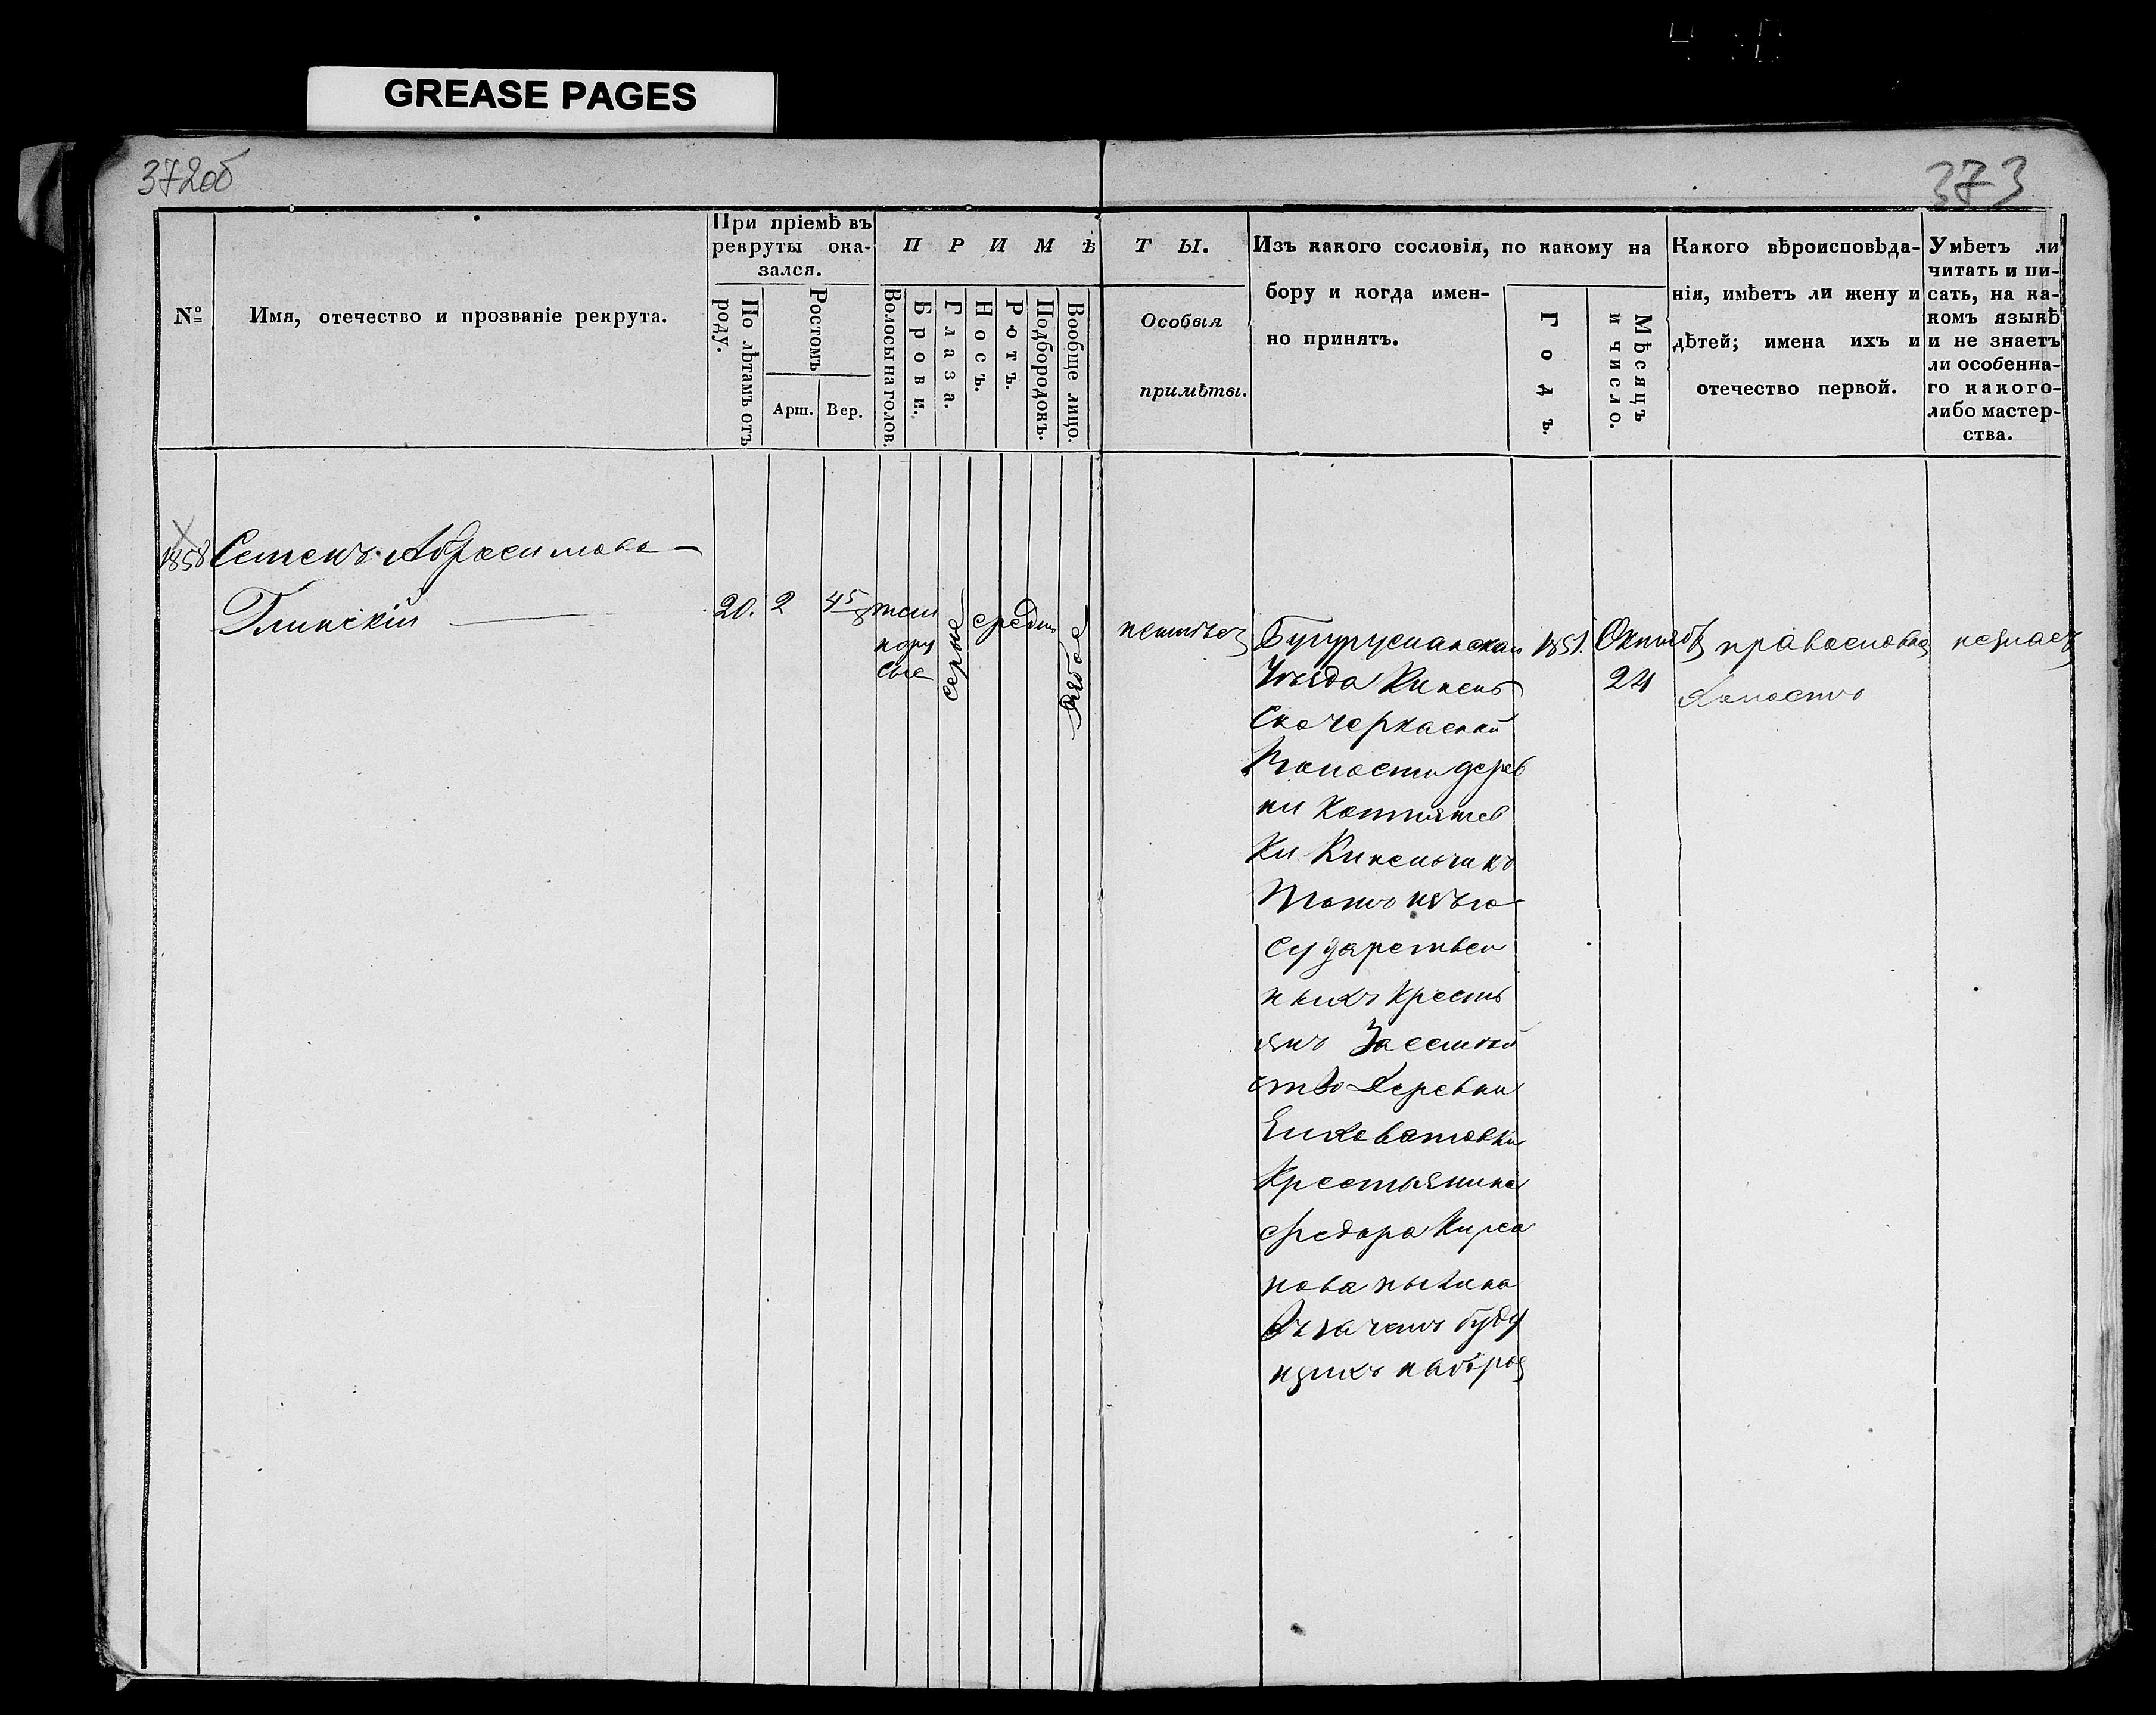 GREASE PAGES
372об
373
№
Имя, отечество и прозваніе рекрута.
При пріемѣ въ
рекруты ока-
зался.
По лѣтамъ отъ
роду.
Ростомъ
Арш.
Вер.
ПРИМѢ
Волосы на голов.
Брови.
Глаза.
Носъ.
Ротъ.
Подбородокъ.
Вообще лицо.
ТЫ.
Особыя
примѣты.
Изъ какого сословія, по какому на
бору и когда имен-
но принятъ.
Годъ.
Мѣсяцъ
и число.
Какого вѣроисповѣда-
нія, имѣетъ ли жену и
дѣтей; имена ихъ и
отечество первой.
Умѣетъ ли
читать и пи-
сать, на ка-
комъ языкѣ
и не знаетъ
ли особенна-
го какого-
либо мастер-
ства.
1858
Семенъ Абросимовъ
Глинскій
20.
2
4 5/8
темно
русые
серые
средн
Рябое
неимѣетъ
Бугурусланскаго
Уѣзда Кинель
Скочеркаской
Волости дерев
ни
Ки Кинельчикъ
тожъ изъ го
сударствен
ныхъ кресть
янъ За семей
ство Деревни
Крестьянина
Федора Кирса
нова
въ зачетъ буду
щихъ наборовъ
1851.
Октября
24
православнаго
Холостъ
незнаетъ